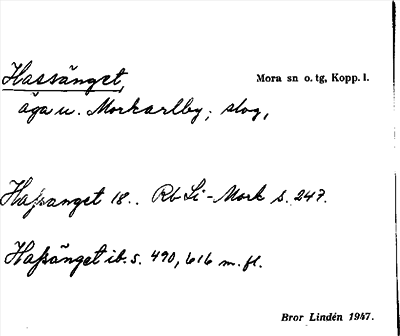 Hassänget,
Mora sn o. tg, Kopp. l.
äga u. Morkarlby; slog,
Haſsanget 18.. Rb Li-Mork s. 247.
Haſsänget ib. s. 490, 616 m. fl.
Bror Lindén 1947.